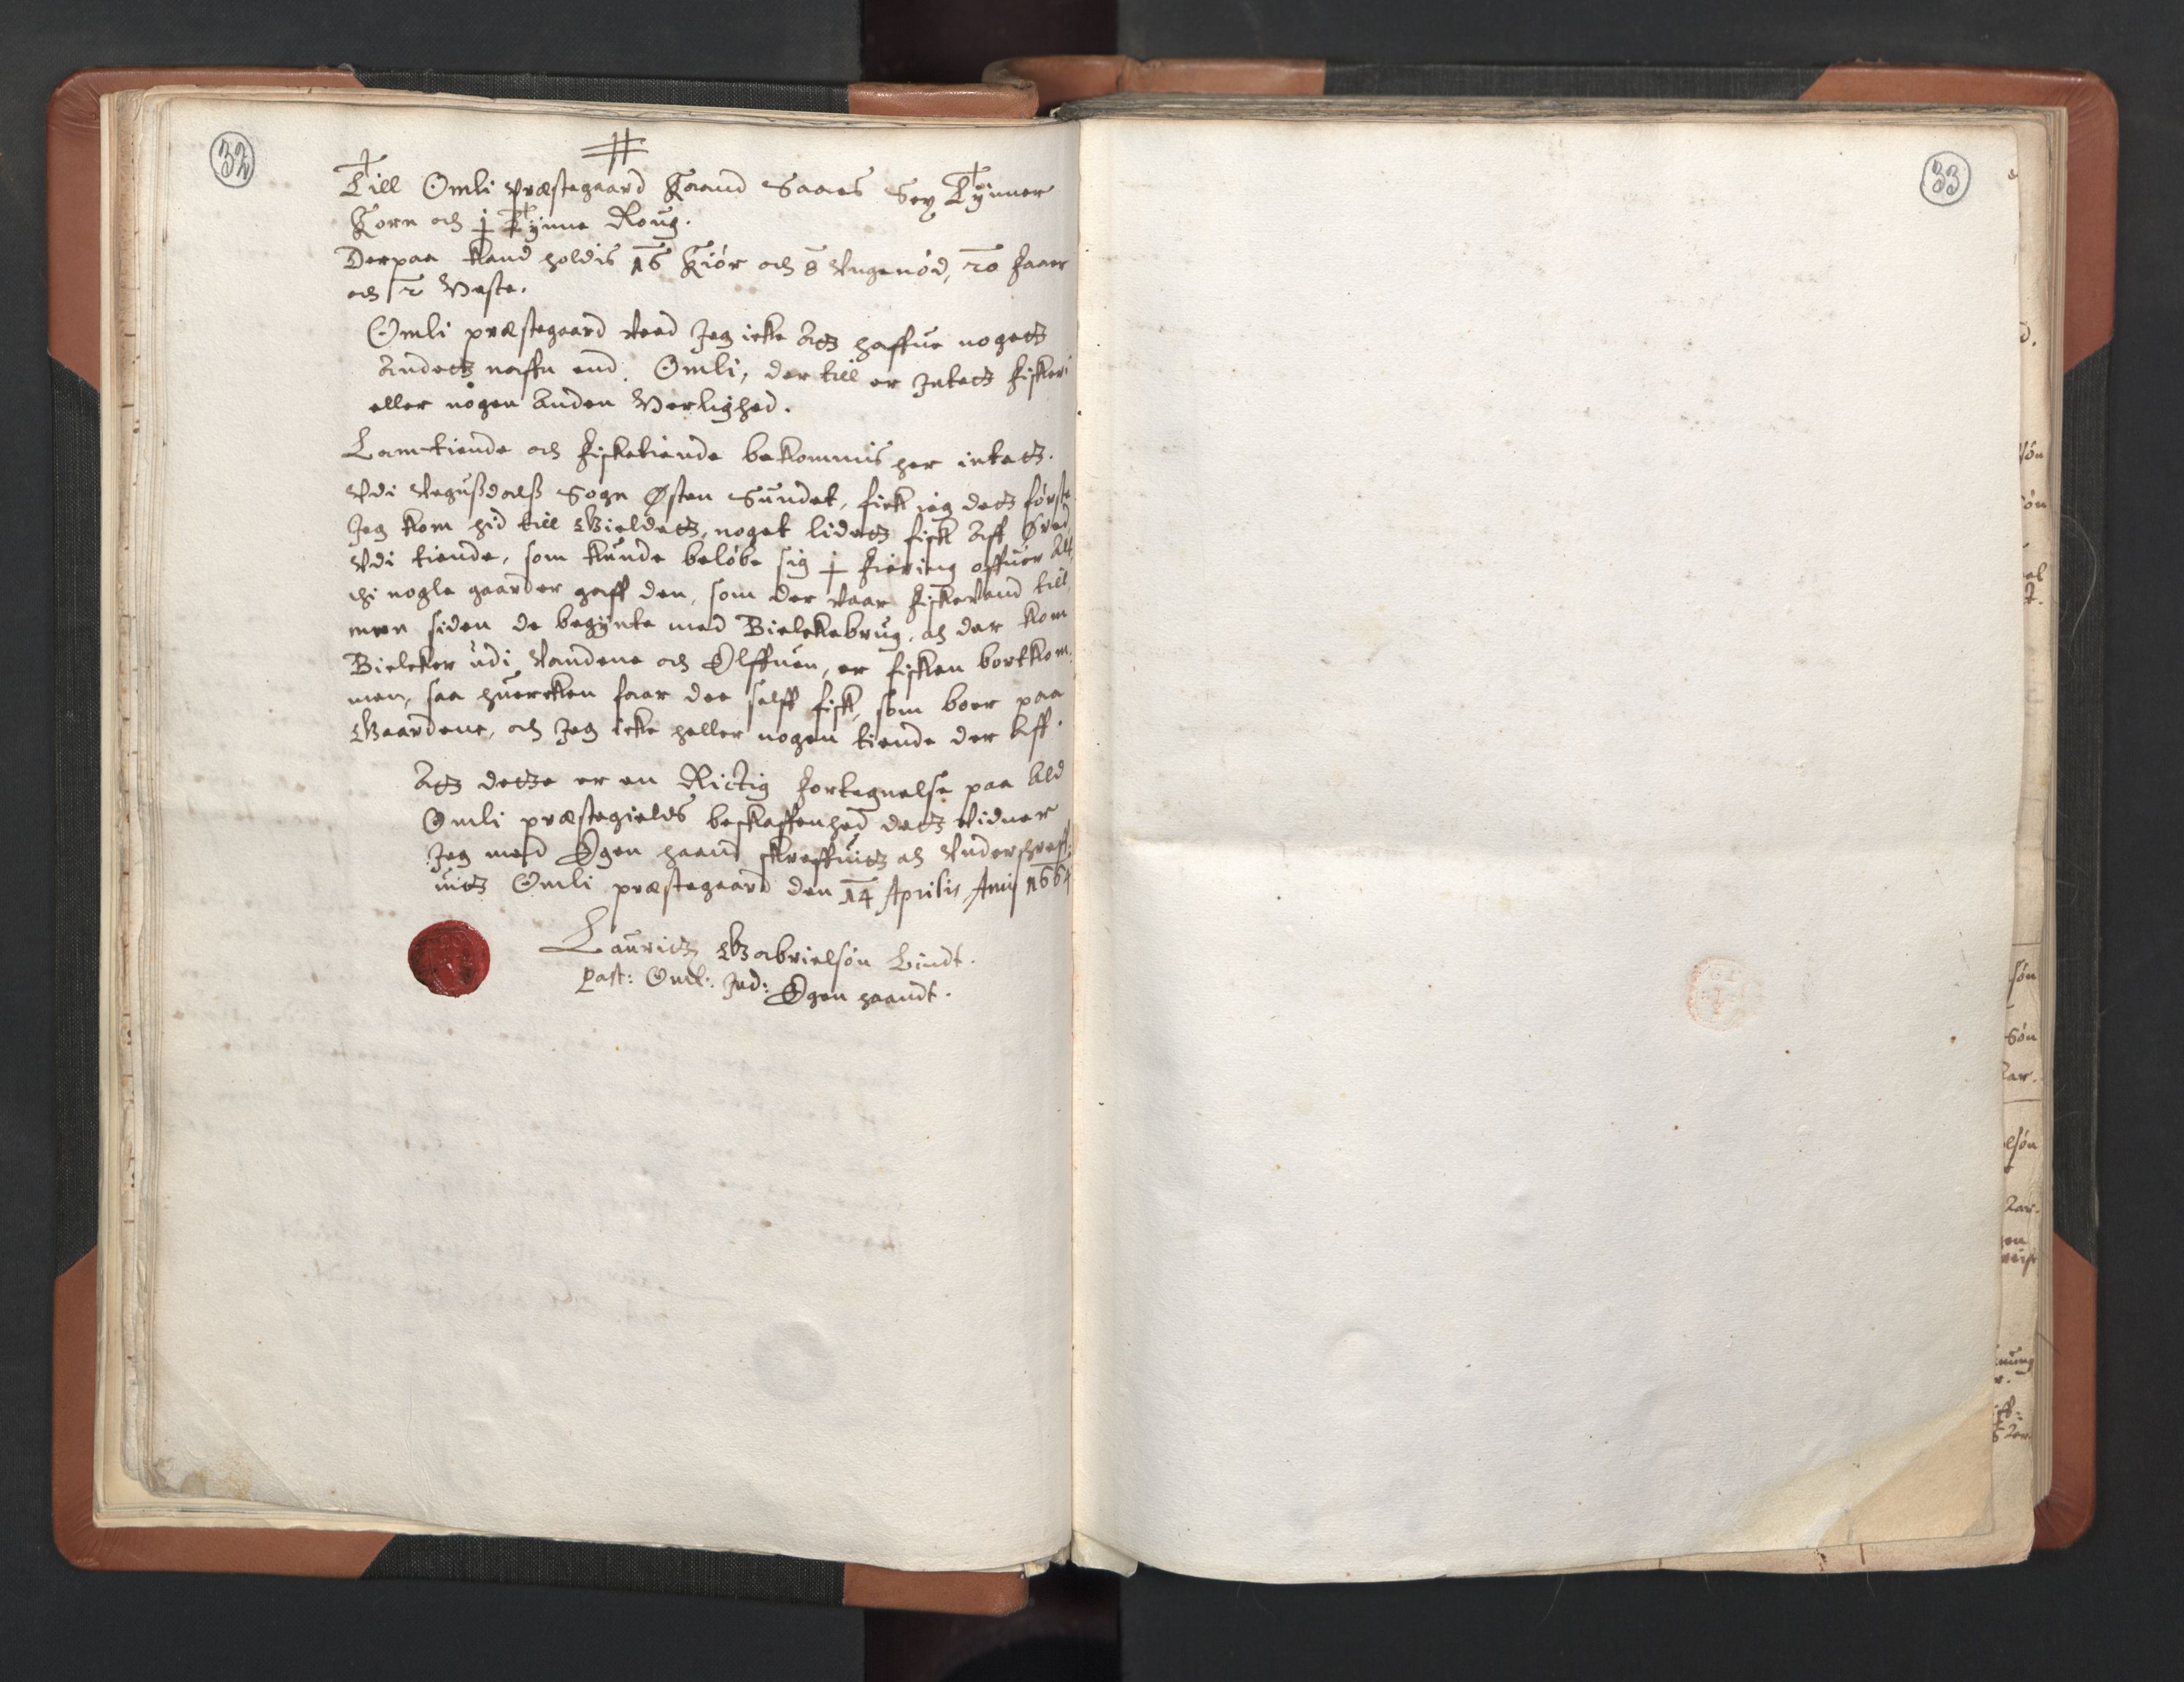 32
Till Omli Præstegaard Kaand Saaes Sex Tynner
Korn och j Tynne Roug.
Derpaa kand holdis 16 Kiör och 8 Vngenöd, 20 faar
och 2 Heste.
Omli præstegaard veed Jeg icke Att haffue nogett
Andett naffn end Omli, der till er Jntett fiskeri
eller nogen Anden Herlighed.
Lam-tiende och fisketiende bekommis her intett.
Vdi Vegußdalß Sogn Østen Sundet, fick ieg dett förste
Jeg kom hid till Gieldett, noget lidett fisk Aff Øred
Vdi tiende, som kunde belöbe sig j fiering offuer Alt
thi nogle gaarder gaff den, som der vaar fiskevand till,
men siden de begÿnte med Bielckebrug, och der kom
Bielcker udi Vandene och Elffuen, er fisken bortkom:
men, saa huercken faar dee selff fisk, som boer paa
Gaardene, och Jeg icke heller nogen tiende der Aff.
Att dette er en Rictig fortegnelse paa Ald
Omli præstegields beskaffenhed dett Vidner
Jeg med Egen haand skreffuitt och Vnderskreff:
uitt Omli præstegaard den 14 Aprilis Anno 1664
Lauritz Gabrielsön Lindt.
Past: Oml: Egen haandt.
33